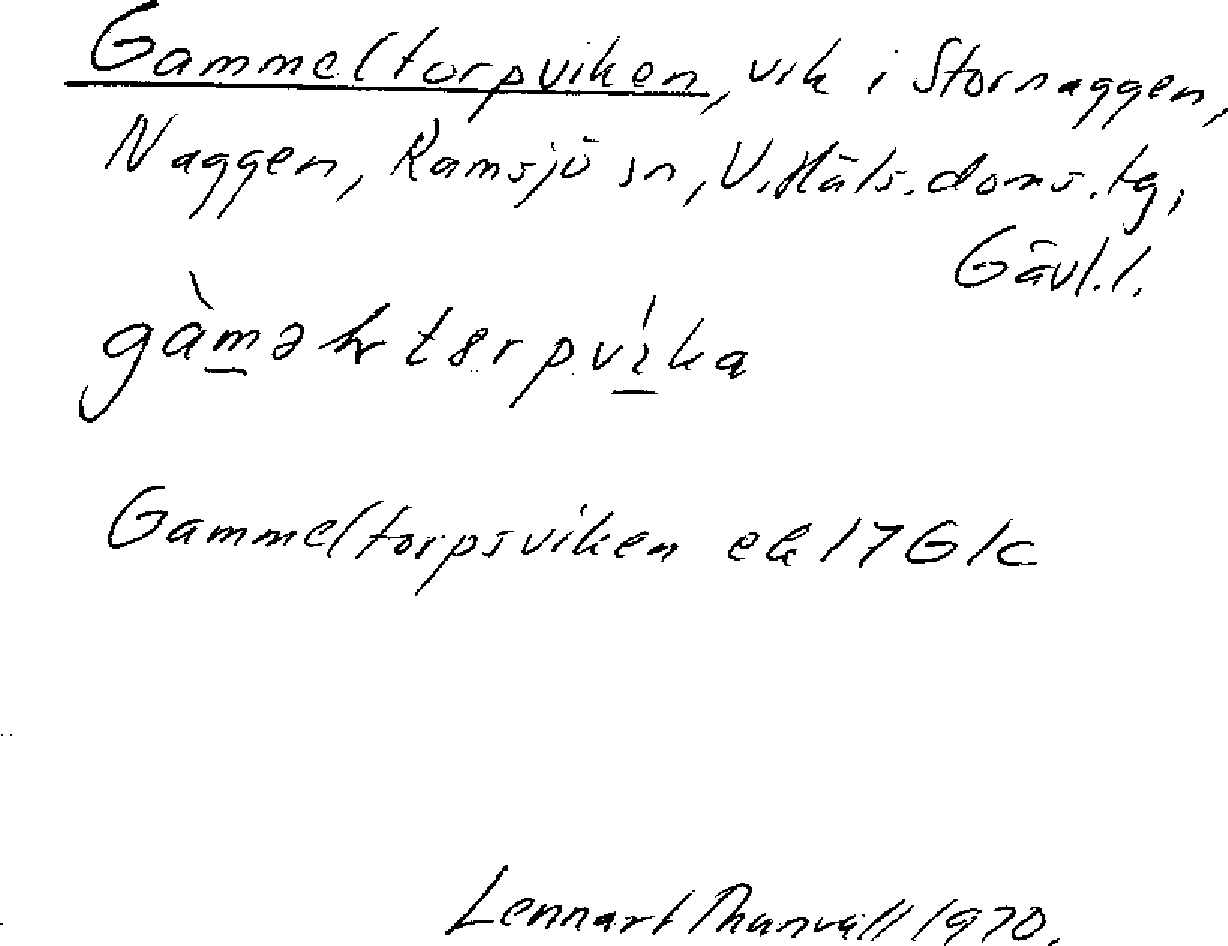 Gammeltorpviken, vik i Stornaggen,
Naggen, Ramsjö sn, V. Häls. doms. tg,
Gävl. l.
Gammeltorpsviken ek 17G1c
Lennart Thunvall 1970.